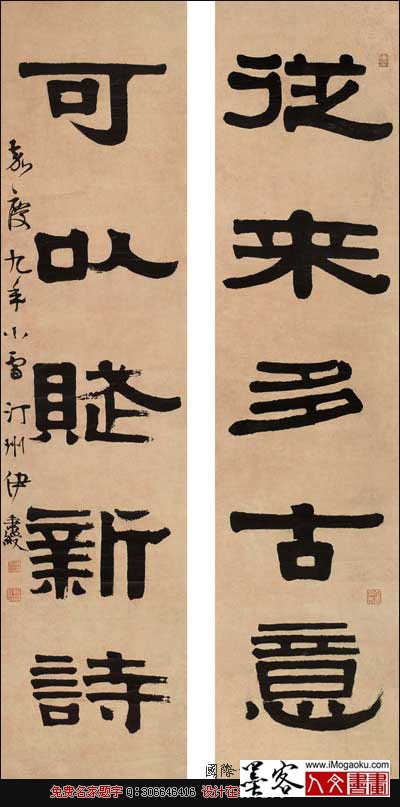 從来多古意
可以賦新詩
嘉慶九年小雪汀州伊秉綬
國際
墨客
www.iMogaoku.com
人文書畫
免费名家题字 Q:306646416 设计在